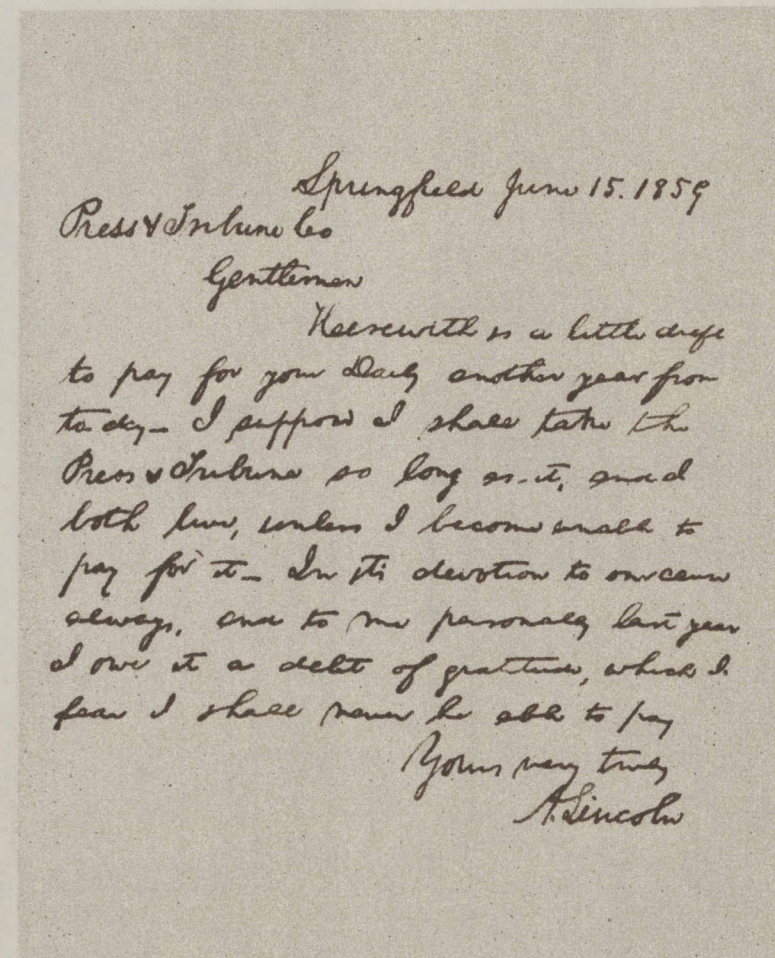 Springfield June 15. 1859
Press & Tribune Co
Gentlemen
Herewith is a little draft
to pay for your Daily another year from
to-day— I suppose I shall take the
Press & Tribune so long as it, and I
both live, unless I become unable to
pay for it— In its devotion to our cause
always, and to me personally last year
I owe it a debt of gratitude, which I
fear I shall never be able to pay
Yours very truly
A. Lincoln